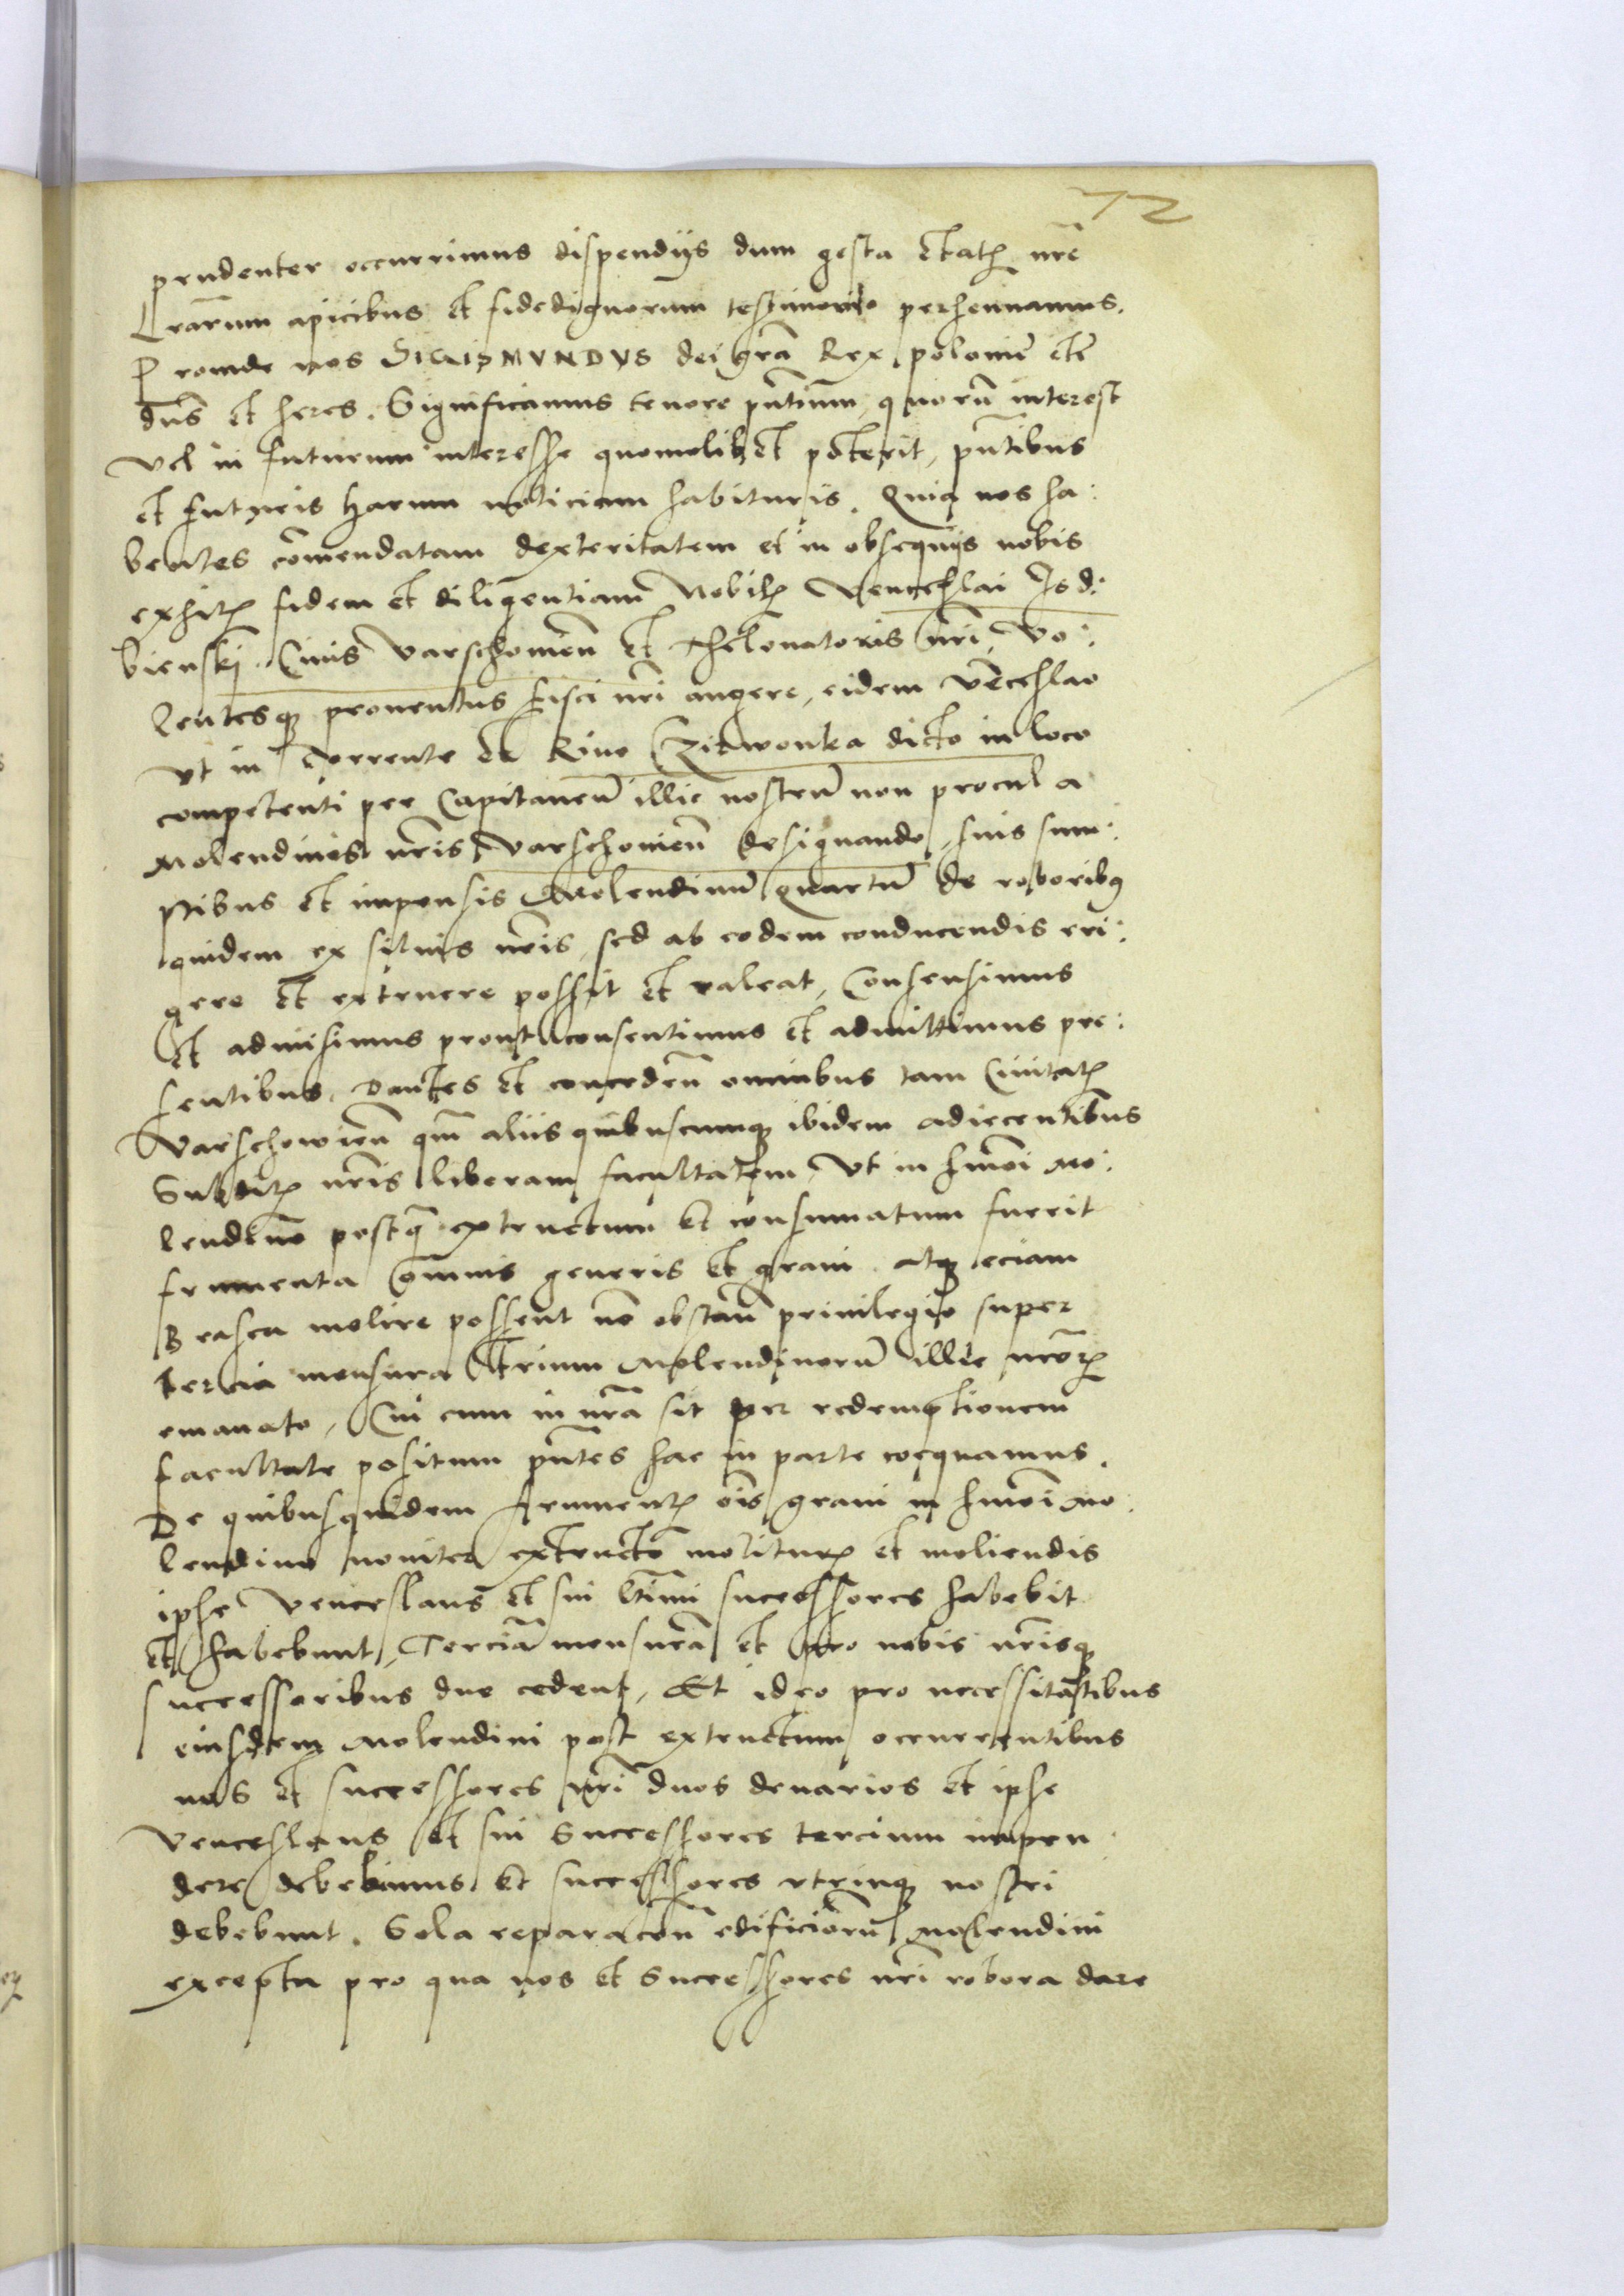 72
prudenter occurrimus dispendijs dum gesta etatꝭ nrẽ
Lrarum apicibus et fidedignorum testimonio perhennamus.
Proinde nos SIGISMVNDVS dei grã Rex polonie etẽ
dñs et heres. Significamus tenore pñtium, quorũ interest
vel in futurum interesse quomolibet poterit, pñtibus
et futuris harum noticiam habituris. Quia nos ha:
bentes cõmendatam dexteritatem et in obsequijs nobis
exhitꝭ fidem et diligentiam Nobilꝭ Venceslai Jsd:
bienskj Ciuis Varschouieñ et Thelonatoris nri, vo:
lentesqꝫ prouentus fisci nri augere, eidem Venceslao
vt in Torrente et Riuo dicto in loco
competenti per Capitaneũ illic nostrũ non procul a
Molendinis nris Varschouieñ designando, suis sum:
ptibus et impensis Molendinũ quartũ de roboribꝰ
quidem ex siluis nris, sed ab eodem conducendis eri:
gere et extruere possit et valeat, Consensimus
et admisimus prout consentimus et admittimus pre:
sentibus. Dantes et conceden̄ omnibus tam Ciuitatꝭ
Varschowieñ qm̃ aliis quibuscumqꝫ ibidem adiecentibus
Subditꝭ nris liberam facultatem, vt in hmõi Mo:
lendino postqꝫ extructum et consumatum fuerit
frumenta Omnis generis et grani atqꝫ eciam
Brasea molere possent nõ obstañ priuilegio super
tercia mensura trium Molendinorũ illic nrõꝝ
emanato, Cui cum in nrã sit per redemptionem
facultate positum pñtes hac in parte coequamus.
De quibusquidem frumentꝭ oĩs grani in hmõi Mo:
lendino nouiter extructo moliturꝭ et moliendis
ipse Venceslaus et sui ltĩmi successores habebit
et habebunt, Terciã mensurã et pro nobis nrisqꝫ
successoribus due cedent, Et ideo pro necessitatibus
eiusdem Molendini post extructum occurrentibus
nos et successores nri duos denarios et ipse
Venceslaus et sui Successores tercium impen
dere debebimus et successores vtrinqꝫ nostri
debebunt. Sola reparacõn edificiorũ Molendini
excepta pro qua nos et Successores nri robora dare